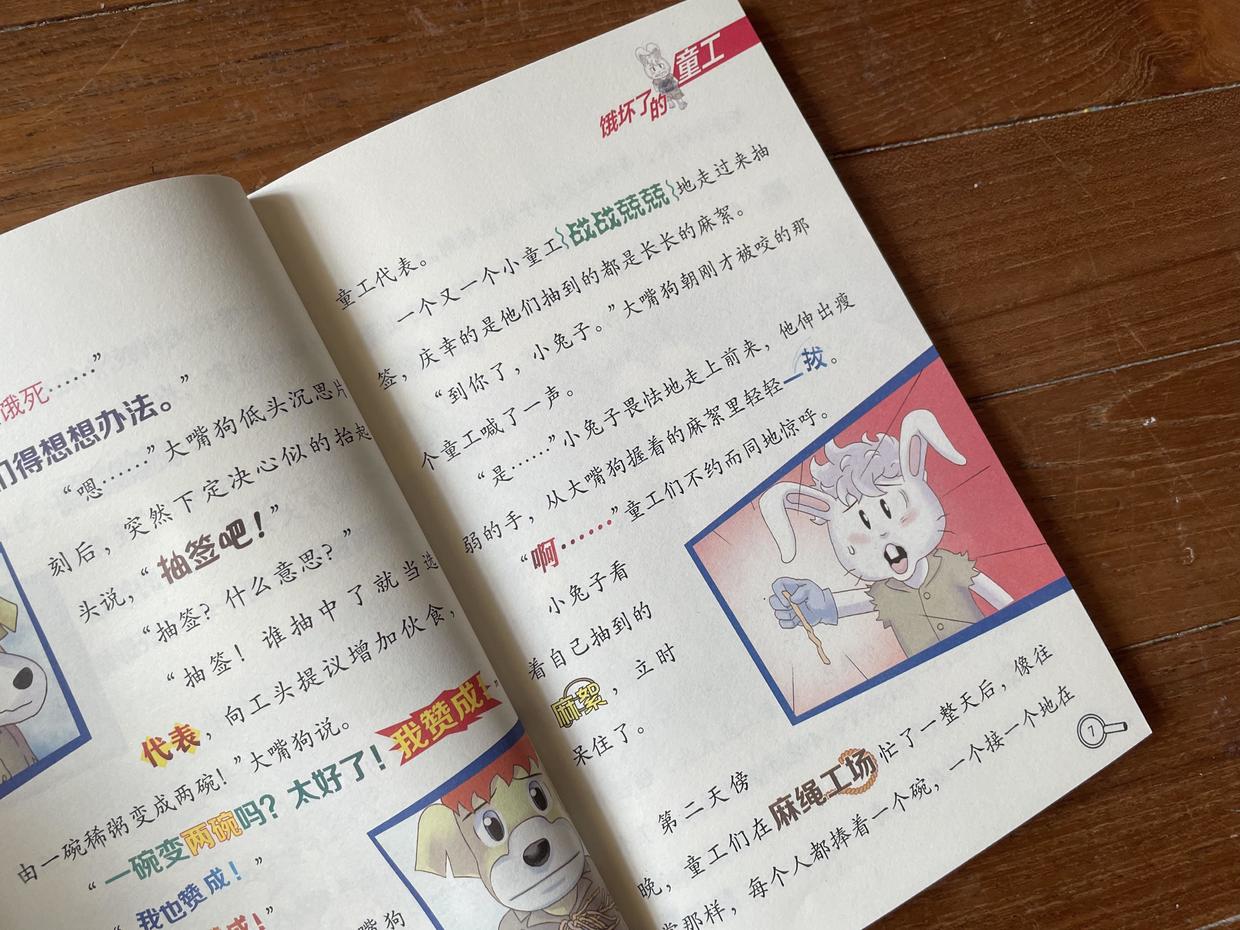 饿死……”
们得想想办法。”
“嗯……”大嘴狗低头沉思片
刻后，突然下定决心似的抬起
头说，“抽签吧！”
“抽签？什么意思？”
“抽签！谁抽中了就当选
代表，向工头提议增加伙食，
由一碗稀粥变成两碗！”大嘴狗说。
“一碗变两碗吗？太好了！我赞成！”
“我也赞成！”
成！”
嘴狗
饿坏了的童工
童工代表。
一个又一个小童工战战兢兢地走过来抽
签，庆幸的是他们抽到的都是长长的麻絮。
“到你了，小兔子。”大嘴狗朝刚才被咬的那
个童工喊了一声。
“是……”小兔子畏怯地走上前来，他伸出瘦
弱的手，从大嘴狗握着的麻絮里轻轻一拔。
“啊……”童工们不约而同地惊呼。
小兔子看
着自己抽到的
麻絮，立时
呆住了。
第二天傍
晚，童工们在麻绳工场忙了一整天后，像往
常那样，每个人都捧着一个碗，一个接一个地在
7